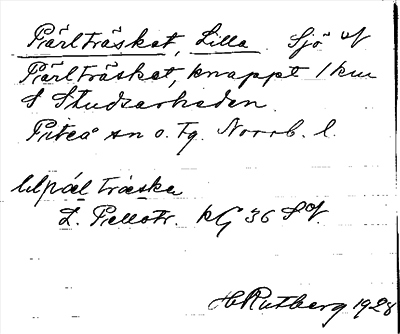 Pärlträsket, Lilla. Sjö V of
Pärlträsket, knappt 1 km
S Studsarheden.
Piteå sn o. tg. Norrb. l.
lilpäl träske
L. Pellstr. kG 36
H Rutberg 1928